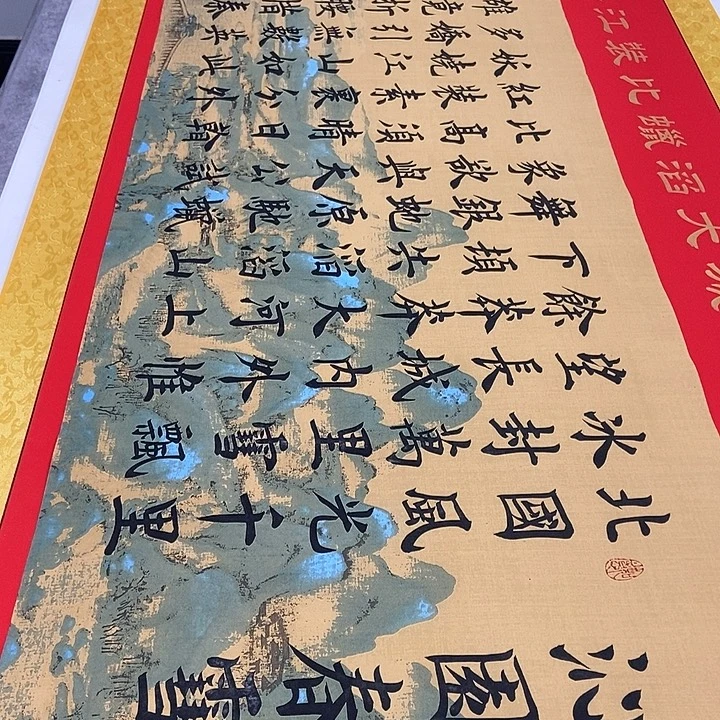 風大滔蠟比裝江
沁園春雪
北國風光千里
冰封萬里雪飄
望長城內外惟
餘莽莽大河上
下頓失滔滔山
舞銀蛇原馳蠟
象欲與天公試
比高須晴日
紅裝素裹分外
妖嬈江山如此
多嬌引無數英
雄競折腰惜秦